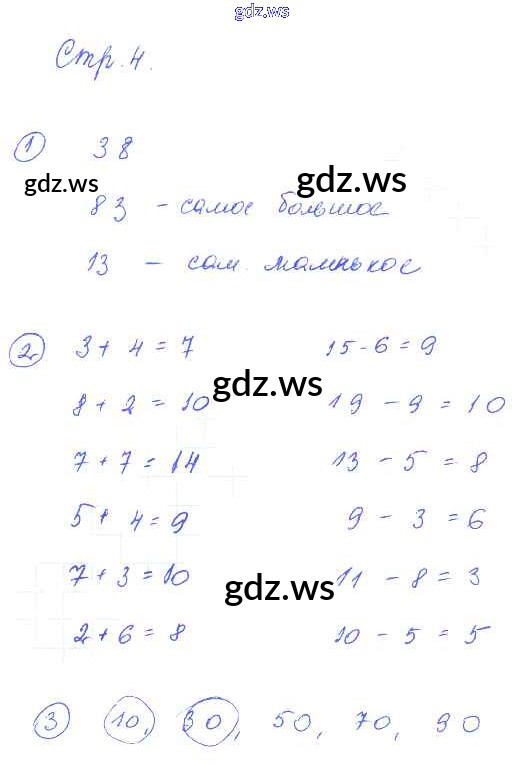 gdz.ws
Стр. 4.
1 38
gdz.ws gdz.ws
83 - самое большое
13 - сам. маленькое
2 3 + 4 = 7 15 - 6 = 9
8 + 2 = 10 gdz.ws 19 - 9 = 10
7 + 7 = 14 13 - 5 = 8
5 + 4 = 9 9 - 3 = 6
7 + 3 = 10 gdz.ws 11 - 8 = 3
2 + 6 = 8 10 - 5 = 5
3 10, 30, 50, 70, 90